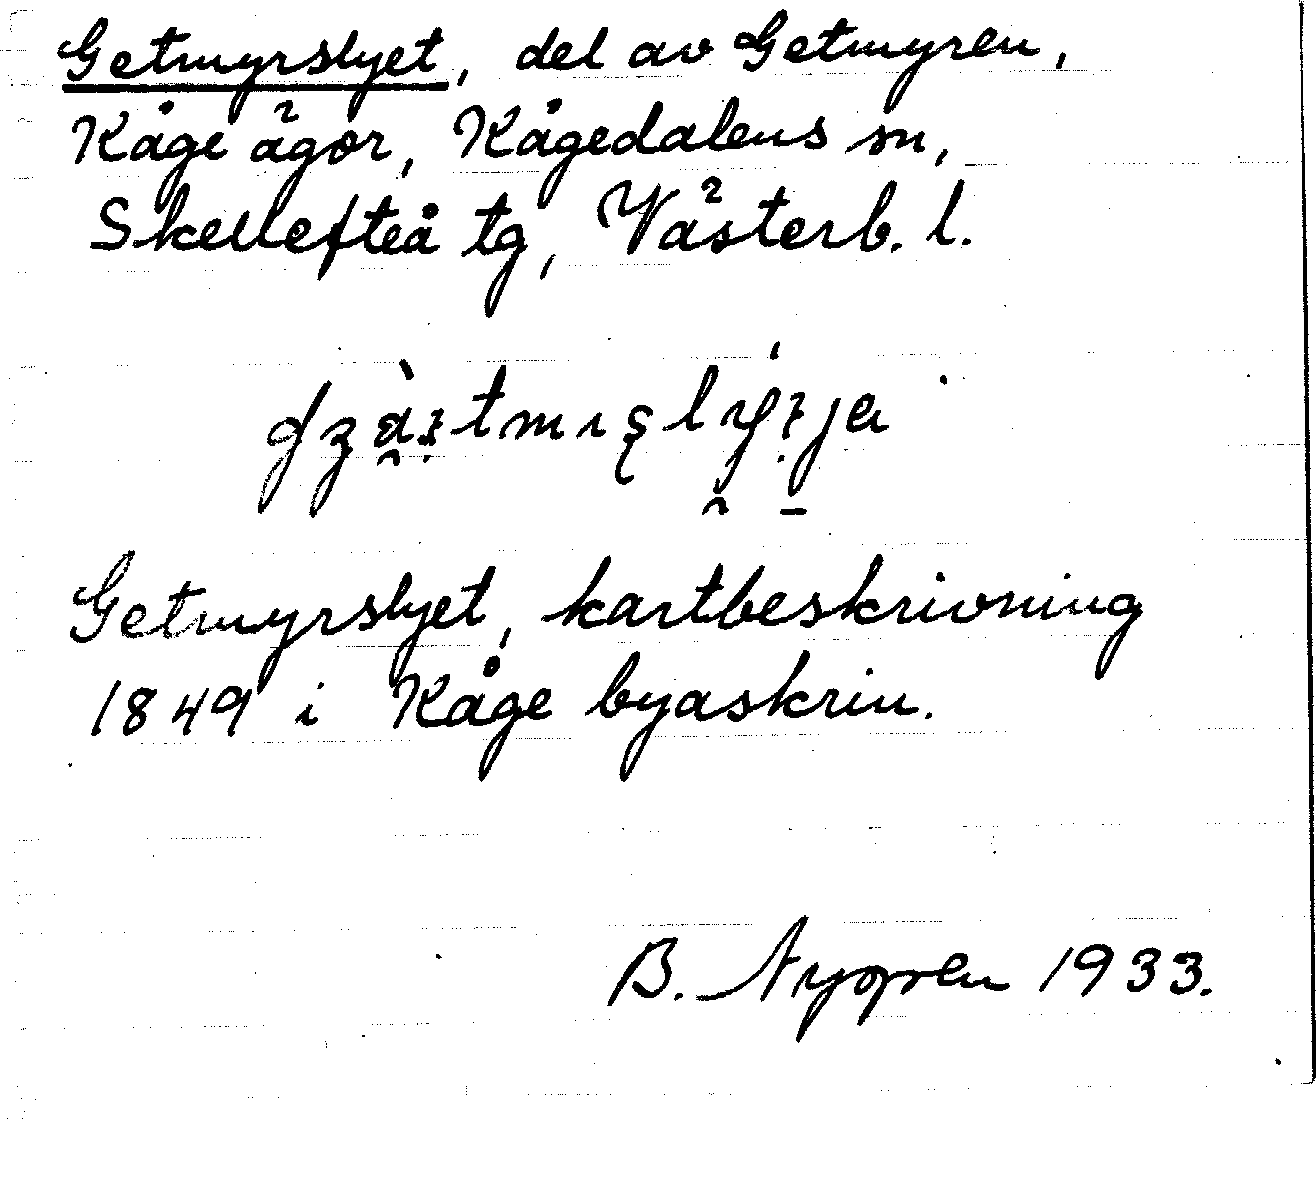 Getmyrslyet, del av Getmyren,
Kåge ägor, Kågedalens sn,
Skellefteå tg, Västerb. l.
Getmyrslyet, kartbeskrivning
1849 i Kåge byaskrin.
B. 1933.